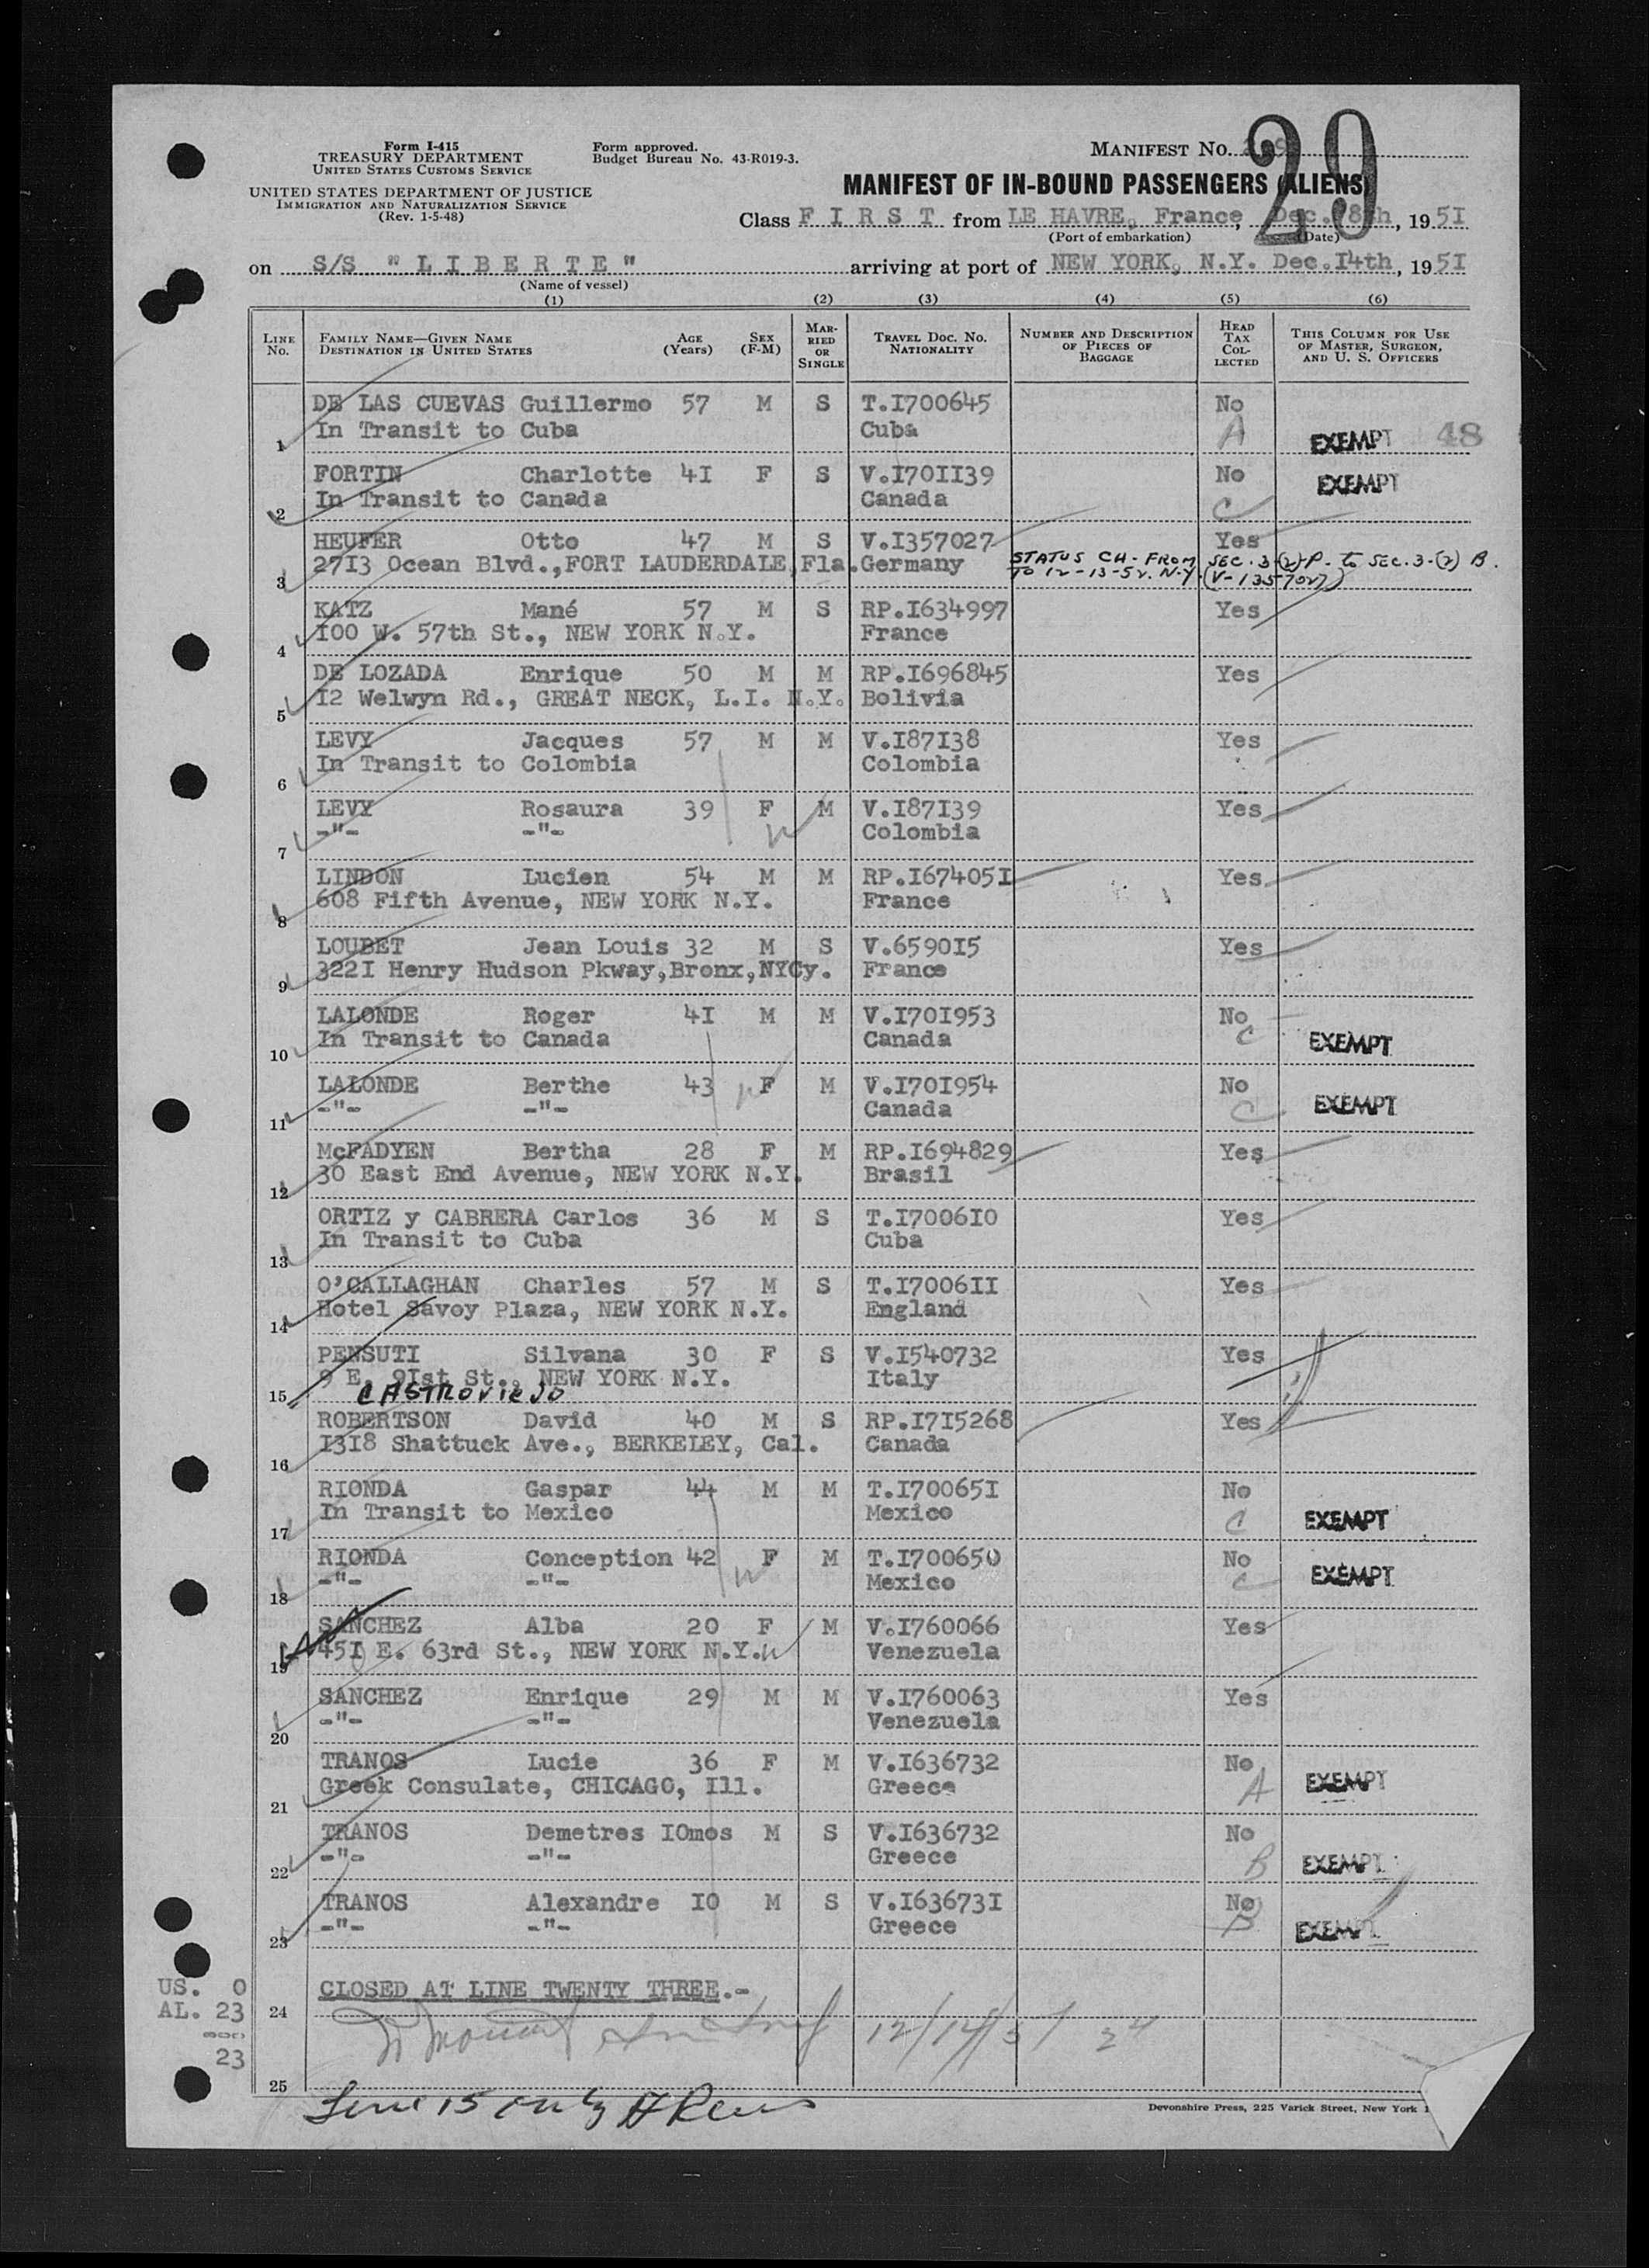 Form I-415
TREASURY DEPARTMENT
UNITED STATES CUSTOMS SERVICE
UNITED STATES DEPARTMENT OF JUSTICE
IMMIGRATION AND NATURALIZATION SERVICE
(Rev. 1-5-48)
Form approved.
Budget Bureau No. 43-R019-3.
MANIFEST NO.
29
MANIFEST OF IN-BOUND PASSENGERS (ALIENS)
Class F I R S T from LE HAVRE, France, Dec. 8th, 1951
(Port of embarkation) (Date)
on S/S "L I B E R T E" arriving at port of NEW YORK, N.Y. Dec.I4th, 195I
(Name of vessel)
(1) (2) (3) (4) (5) (6)
LINE No. FAMILY NAME—GIVEN NAME DESTINATION IN UNITED STATES AGE (Years) SEX (F-M) MARRIED OR SINGLE TRAVEL DOC. NO. NATIONALITY NUMBER AND DESCRIPTION OF PIECES OF BAGGAGE HEAD TAX COLLECTED THIS COLUMN FOR USE OF MASTER, SURGEON, AND U. S. OFFICERS
DE LAS CUEVAS Guillermo 57 M S T.I700645 No
1 In Transit to Cuba Cuba A EXEMPT 48
FORTIN Charlotte 4I F S V.I70II39 No EXEMPT
2 In Transit to Canada Canada C
HEUFER Otto 47 M S V.I357027 Yes
3 27I3 Ocean Blvd.,FORT LAUDERDALE,Fla. Germany STATUS CH. FROM SEC. 3(2)-P. to SEC. 3-(2) B.
TO 12-13-52. N.Y. (V-1357027)
KATZ Mané 57 M S RP.I634997 Yes
4 I00 W. 57th St., NEW YORK N.Y. France
DE LOZADA Enrique 50 M M RP.I696845 Yes
5 I2 Welwyn Rd., GREAT NECK, L.I. N.Y. Bolivia
LEVY Jacques 57 M M V.I87I38 Yes
6 In Transit to Colombia Colombia
LEVY Rosaura 39 F M V.I87I39 Yes
7 -"- -"- Colombia
LINDON Lucien 54 M M RP.I67405I Yes
8 608 Fifth Avenue, NEW YORK N.Y. France
LOUBET Jean Louis 32 M S V.6590I5 Yes
9 322I Henry Hudson Pkway,Bronx,NYCy. France
LALONDE Roger 4I M M V.I70I953 No
10 In Transit to Canada Canada C EXEMPT
LALONDE Berthe 43 F M V.I70I954 No
11 -"- -"- Canada C EXEMPT
McFADYEN Bertha 28 F M RP.I694829 Yes
12 30 East End Avenue, NEW YORK N.Y. Brasil
ORTIZ y CABRERA Carlos 36 M S T.I7006I0 Yes
13 In Transit to Cuba Cuba
O'CALLAGHAN Charles 57 M S T.I7006II Yes
14 Hotel Savoy Plaza, NEW YORK N.Y. England
PENSUTI Silvana 30 F S V.I540732 Yes
15 9 E. 9Ist St., NEW YORK N.Y. Italy
CASTROVIEJO
ROBERTSON David 40 M S RP.I7I5268 Yes
16 I3I8 Shattuck Ave., BERKELEY, Cal. Canada
RIONDA Gaspar 44 M M T.I70065I No
17 In Transit to Mexico Mexico C EXEMPT
RIONDA Conception 42 F M T.I700650 No
18 -"- -"- Mexico C EXEMPT
SANCHEZ Alba 20 F M V.I760066 Yes
19 45I E. 63rd St., NEW YORK N.Y. Venezuela
SANCHEZ Enrique 29 M M V.I760063 Yes
20 -"- -"- Venezuela
TRANOS Lucie 36 F M V.I636732 No
21 Greek Consulate, CHICAGO, Ill. Greece A EXEMPT
TRANOS Demetres I0mos M S V.I636732 No
22 -"- -"- Greece B EXEMPT
TRANOS Alexandre I0 M S V.I63673I No
23 -"- -"- Greece B EXEMPT
US. 0 CLOSED AT LINE TWENTY THREE.-
AL. 23 24
12/14/51
23
25
Line 15 only
Devonshire Press, 225 Varick Street, New York